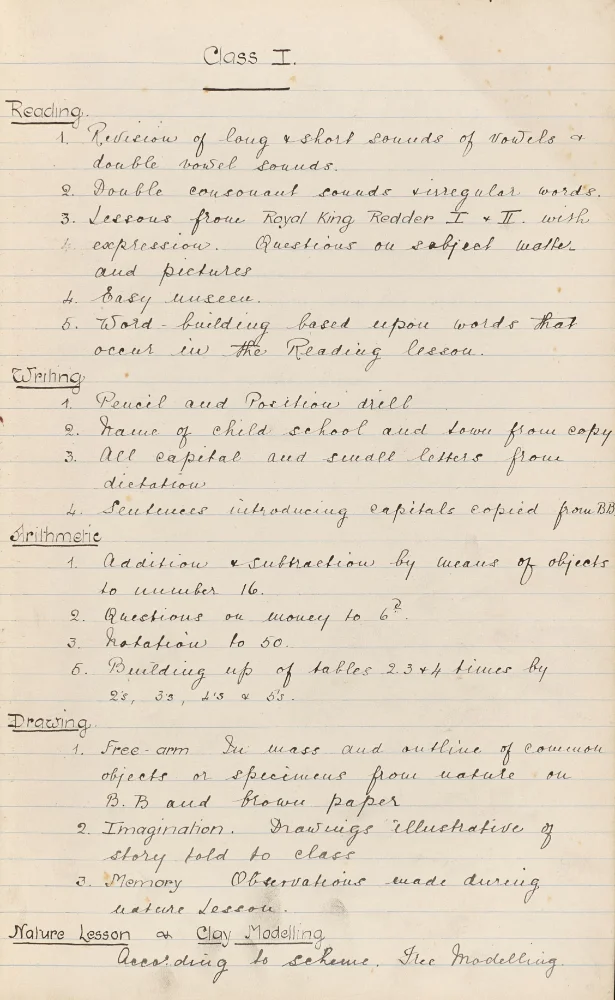 Class I.
Reading.
1. Revision of long & short sounds of vowels &
double vowel sounds.
2. Double consonant sounds & irregular words.
3. Lessons from Royal King Redder I & II. with
4. expression. Questions on subject matter
and pictures
4. Easy unseen.
5. Word-building based upon words that
occur in the Reading lesson.
Writing
1. Pencil and Position drill
2. Name of child school and town from copy
3. All capital and small letters from
dictation
4. Sentences introducing capitals copied from BB
Arithmetic
1. Addition & subtraction by means of objects
to number 16.
2. Questions on money to 6d.
3. Notation to 50.
5. Building up of tables 2.3 & 4 times by
2's, 3's, 4's & 5's.
Drawing
1. Free-arm In mass and outline of common
objects or specimens from nature on
B.B and brown paper
2. Imagination. Drawings illustrative of
story told to class
3. Memory Observations made during
nature lesson.
Nature Lesson & Clay Modelling
According to scheme. Free Modelling.